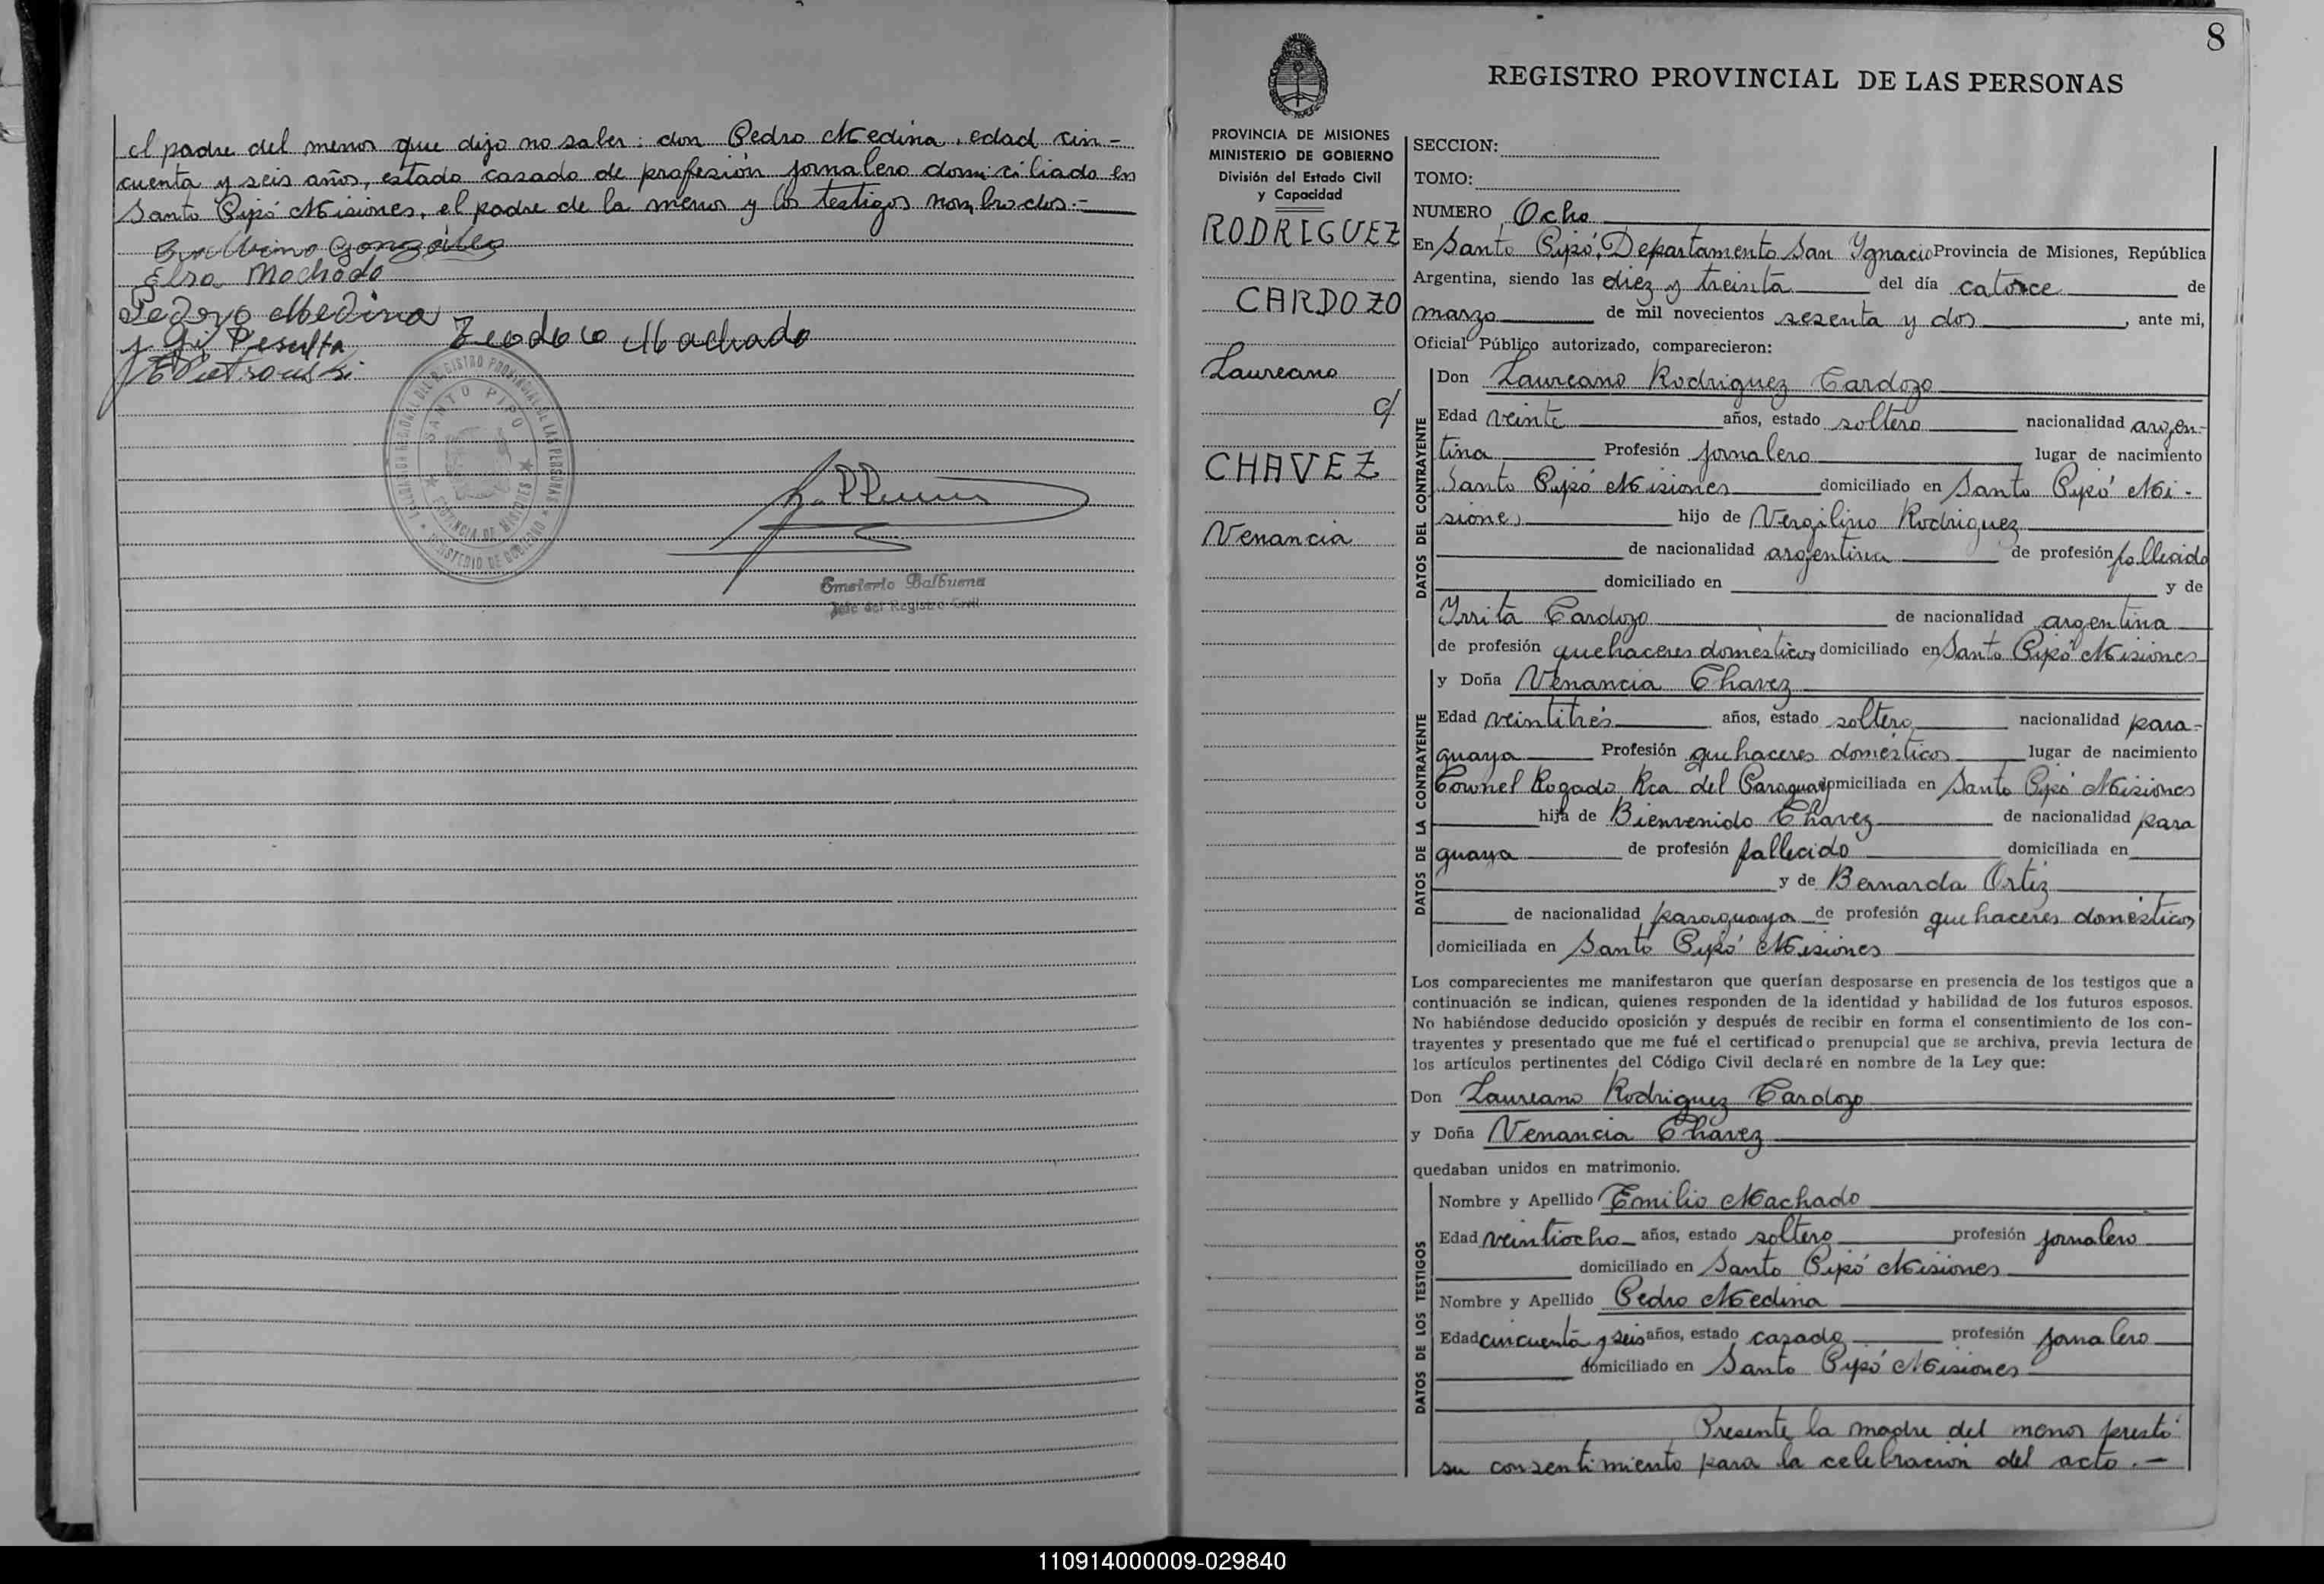 el padre del menor que dijo no saber: don Pedro Medina, edad cin-
cuenta y seis años, estado casado de profesión jornalero domiciliado en
Santo Pipó Misiones, el padre de la menor y los testigos nombrados.-
González
Elsa Machado
Pedro Medina
Teodoro Machado
SANTO PIPO
PROVINCIA DE MISIONES
MINISTERIO DE GOBIERNO
Emeterio Balbuena
Jefe del Registro Civil
8
REGISTRO PROVINCIAL DE LAS PERSONAS
PROVINCIA DE MISIONES
MINISTERIO DE GOBIERNO
División del Estado Civil
y Capacidad
RODRIGUEZ
CARDOZO
Laureano
c/
CHAVEZ
Venancia
SECCION:
TOMO:
NUMERO Ocho
En Santo Pipó, Departamento San Ygnacio Provincia de Misiones, República
Argentina, siendo las diez y treinta del día catorce de
marzo de mil novecientos sesenta y dos, ante mi,
Oficial Público autorizado, comparecieron:
DATOS DEL CONTRAYENTE
Don Laureano Rodriguez Cardozo
Edad veinte años, estado soltero nacionalidad argen-
tina Profesión jornalero lugar de nacimiento
Santo Pipó Misiones domiciliado en Santo Pipó Mi-
siones hijo de Vergilino Rodriguez
de nacionalidad argentina de profesión fallecido
domiciliado en y de
Yrrita Cardozo de nacionalidad argentina
de profesión quehaceres domésticos domiciliado en Santo Pipó Misiones
DATOS DE LA CONTRAYENTE
y Doña Venancia Chavez
Edad veintitrés años, estado soltera nacionalidad para-
guaya Profesión quehaceres domésticos lugar de nacimiento
Coronel Bogado Rca. del Paraguay domiciliada en Santo Pipó Misiones
hija de Bienvenido Chavez de nacionalidad para
guaya de profesión fallecido domiciliada en
y de Bernarda Ortiz
de nacionalidad paraguaya de profesión quehaceres domésticos
domiciliada en Santo Pipó Misiones
Los comparecientes me manifestaron que querían desposarse en presencia de los testigos que a
continuación se indican, quienes responden de la identidad y habilidad de los futuros esposos.
No habiéndose deducido oposición y después de recibir en forma el consentimiento de los con-
trayentes y presentado que me fué el certificado prenupcial que se archiva, previa lectura de
los artículos pertinentes del Código Civil declaré en nombre de la Ley que:
Don Laureano Rodriguez Cardozo
y Doña Venancia Chavez
quedaban unidos en matrimonio.
DATOS DE LOS TESTIGOS
Nombre y Apellido Emilio Machado
Edad veintiocho años, estado soltero profesión jornalero
domiciliado en Santo Pipó Misiones
Nombre y Apellido Pedro Medina
Edad cincuenta y seis años, estado casado profesión jornalero
domiciliado en Santo Pipó Misiones
Presente la madre del menor prestó
su consentimiento para la celebración del acto.-
110914000009-029840